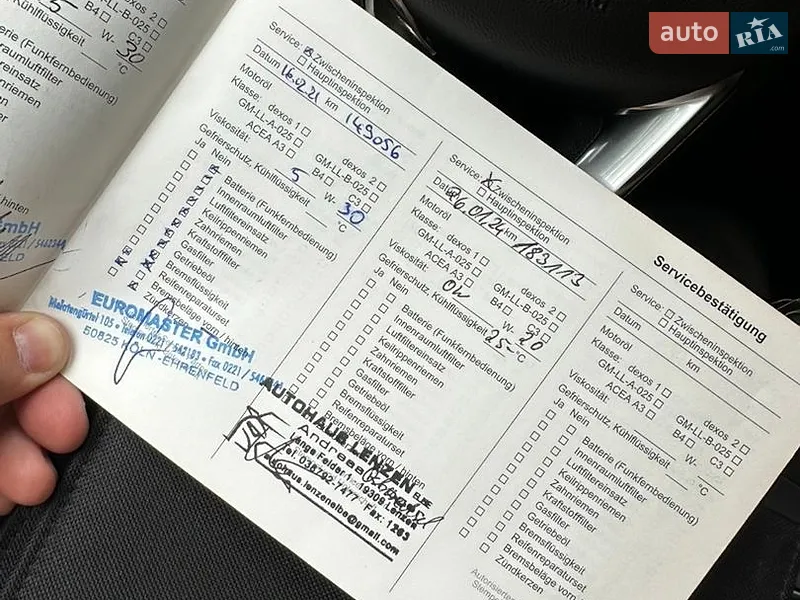 auto
RIA
.com
5
B4 W- 30
C3
°C
(Funkfernbedienung)
mbH
Service: Zwischeninspektion
Hauptinspektion
Datum 16.02.21 km 149056
Motoröl
Klasse: dexos 1 dexos 2
GM-LL-A-025 GM-LL-B-025
ACEA A3 B4 C3
Viskosität: 5 W- 30
Gefrierschutz, Kühlflüssigkeit °C
Ja Nein
Batterie (Funkfernbedienung)
Innenraumluftfilter
Luftfiltereinsatz
Keilrippenriemen
Zahnriemen
Kraftstofffilter
Gasfilter
Getriebeöl
Bremsflüssigkeit
Reifenreparaturset
Bremsbeläge vorn / hinten
Zündkerzen
EUROMASTER GmbH
50823 KÖLN-EHRENFELD
Service: Zwischeninspektion
Hauptinspektion
Datum 26.01.24 km 183113
Motoröl
Klasse: dexos 1 dexos 2
GM-LL-A-025 GM-LL-B-025
ACEA A3 B4 C3
Viskosität: 0W W- 20
Gefrierschutz, Kühlflüssigkeit 25- °C
Ja Nein
Batterie (Funkfernbedienung)
Innenraumluftfilter
Luftfiltereinsatz
Keilrippenriemen
Zahnriemen
Kraftstofffilter
Gasfilter
Getriebeöl
Bremsflüssigkeit
Reifenreparaturset
Bremsbeläge vorn / hinten
AUTOHAUS-LENZEN
Andreas
19309 Lenzen
Servicebestätigung
Service: Zwischeninspektion
Hauptinspektion
Datum km
Motoröl
Klasse: dexos 1 dexos 2
GM-LL-A-025 GM-LL-B-025
ACEA A3 B4 C3
Viskosität: W-
Gefrierschutz, Kühlflüssigkeit °C
Ja Nein
Batterie (Funkfernbedienung)
Innenraumluftfilter
Luftfiltereinsatz
Keilrippenriemen
Zahnriemen
Kraftstofffilter
Gasfilter
Getriebeöl
Bremsflüssigkeit
Reifenreparaturset
Bremsbeläge vorn /
Zündkerzen